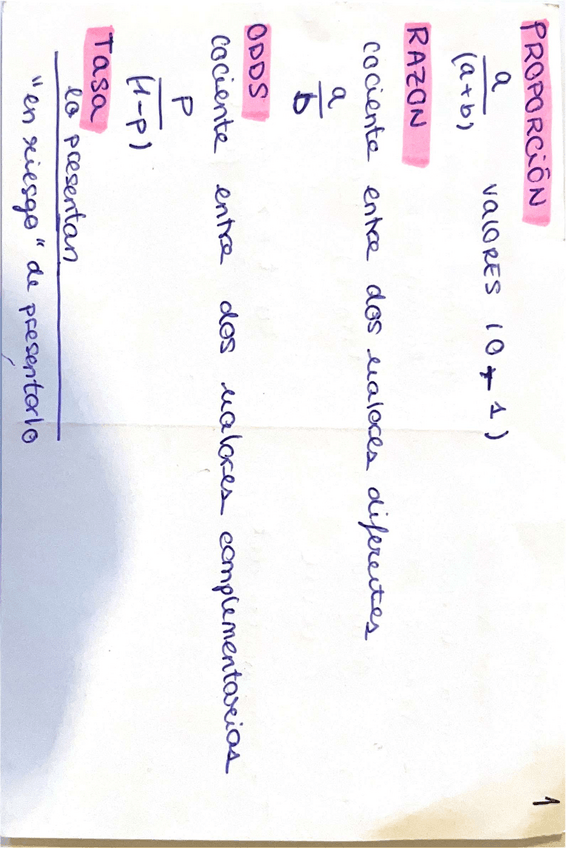 1
PROPORCIÓN
a
(a+b)
VALORES (0 + 1)
RAZON
cociente entre dos valores diferentes
a
b
ODDS
cociente entre dos valores complementarios
p
(1-p)
Tasa
lo presentan
"en riesgo" de presentarlo